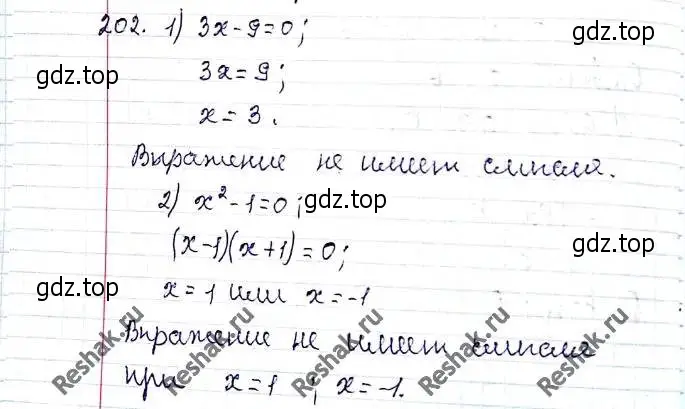 202. 1) 3x-9=0;
gdz.top gdz.top
3x=9;
x=3.
Выражение не имеет смысла.
2) x²-1=0; gdz.top
(x-1)(x+1)=0;
gdz.top
gdz.top
x=1 или x=-1
Выражение не имеет смысла
при x=1 ; x=-1.
Reshak.ru Reshak.ru Reshak.ru Reshak.ru